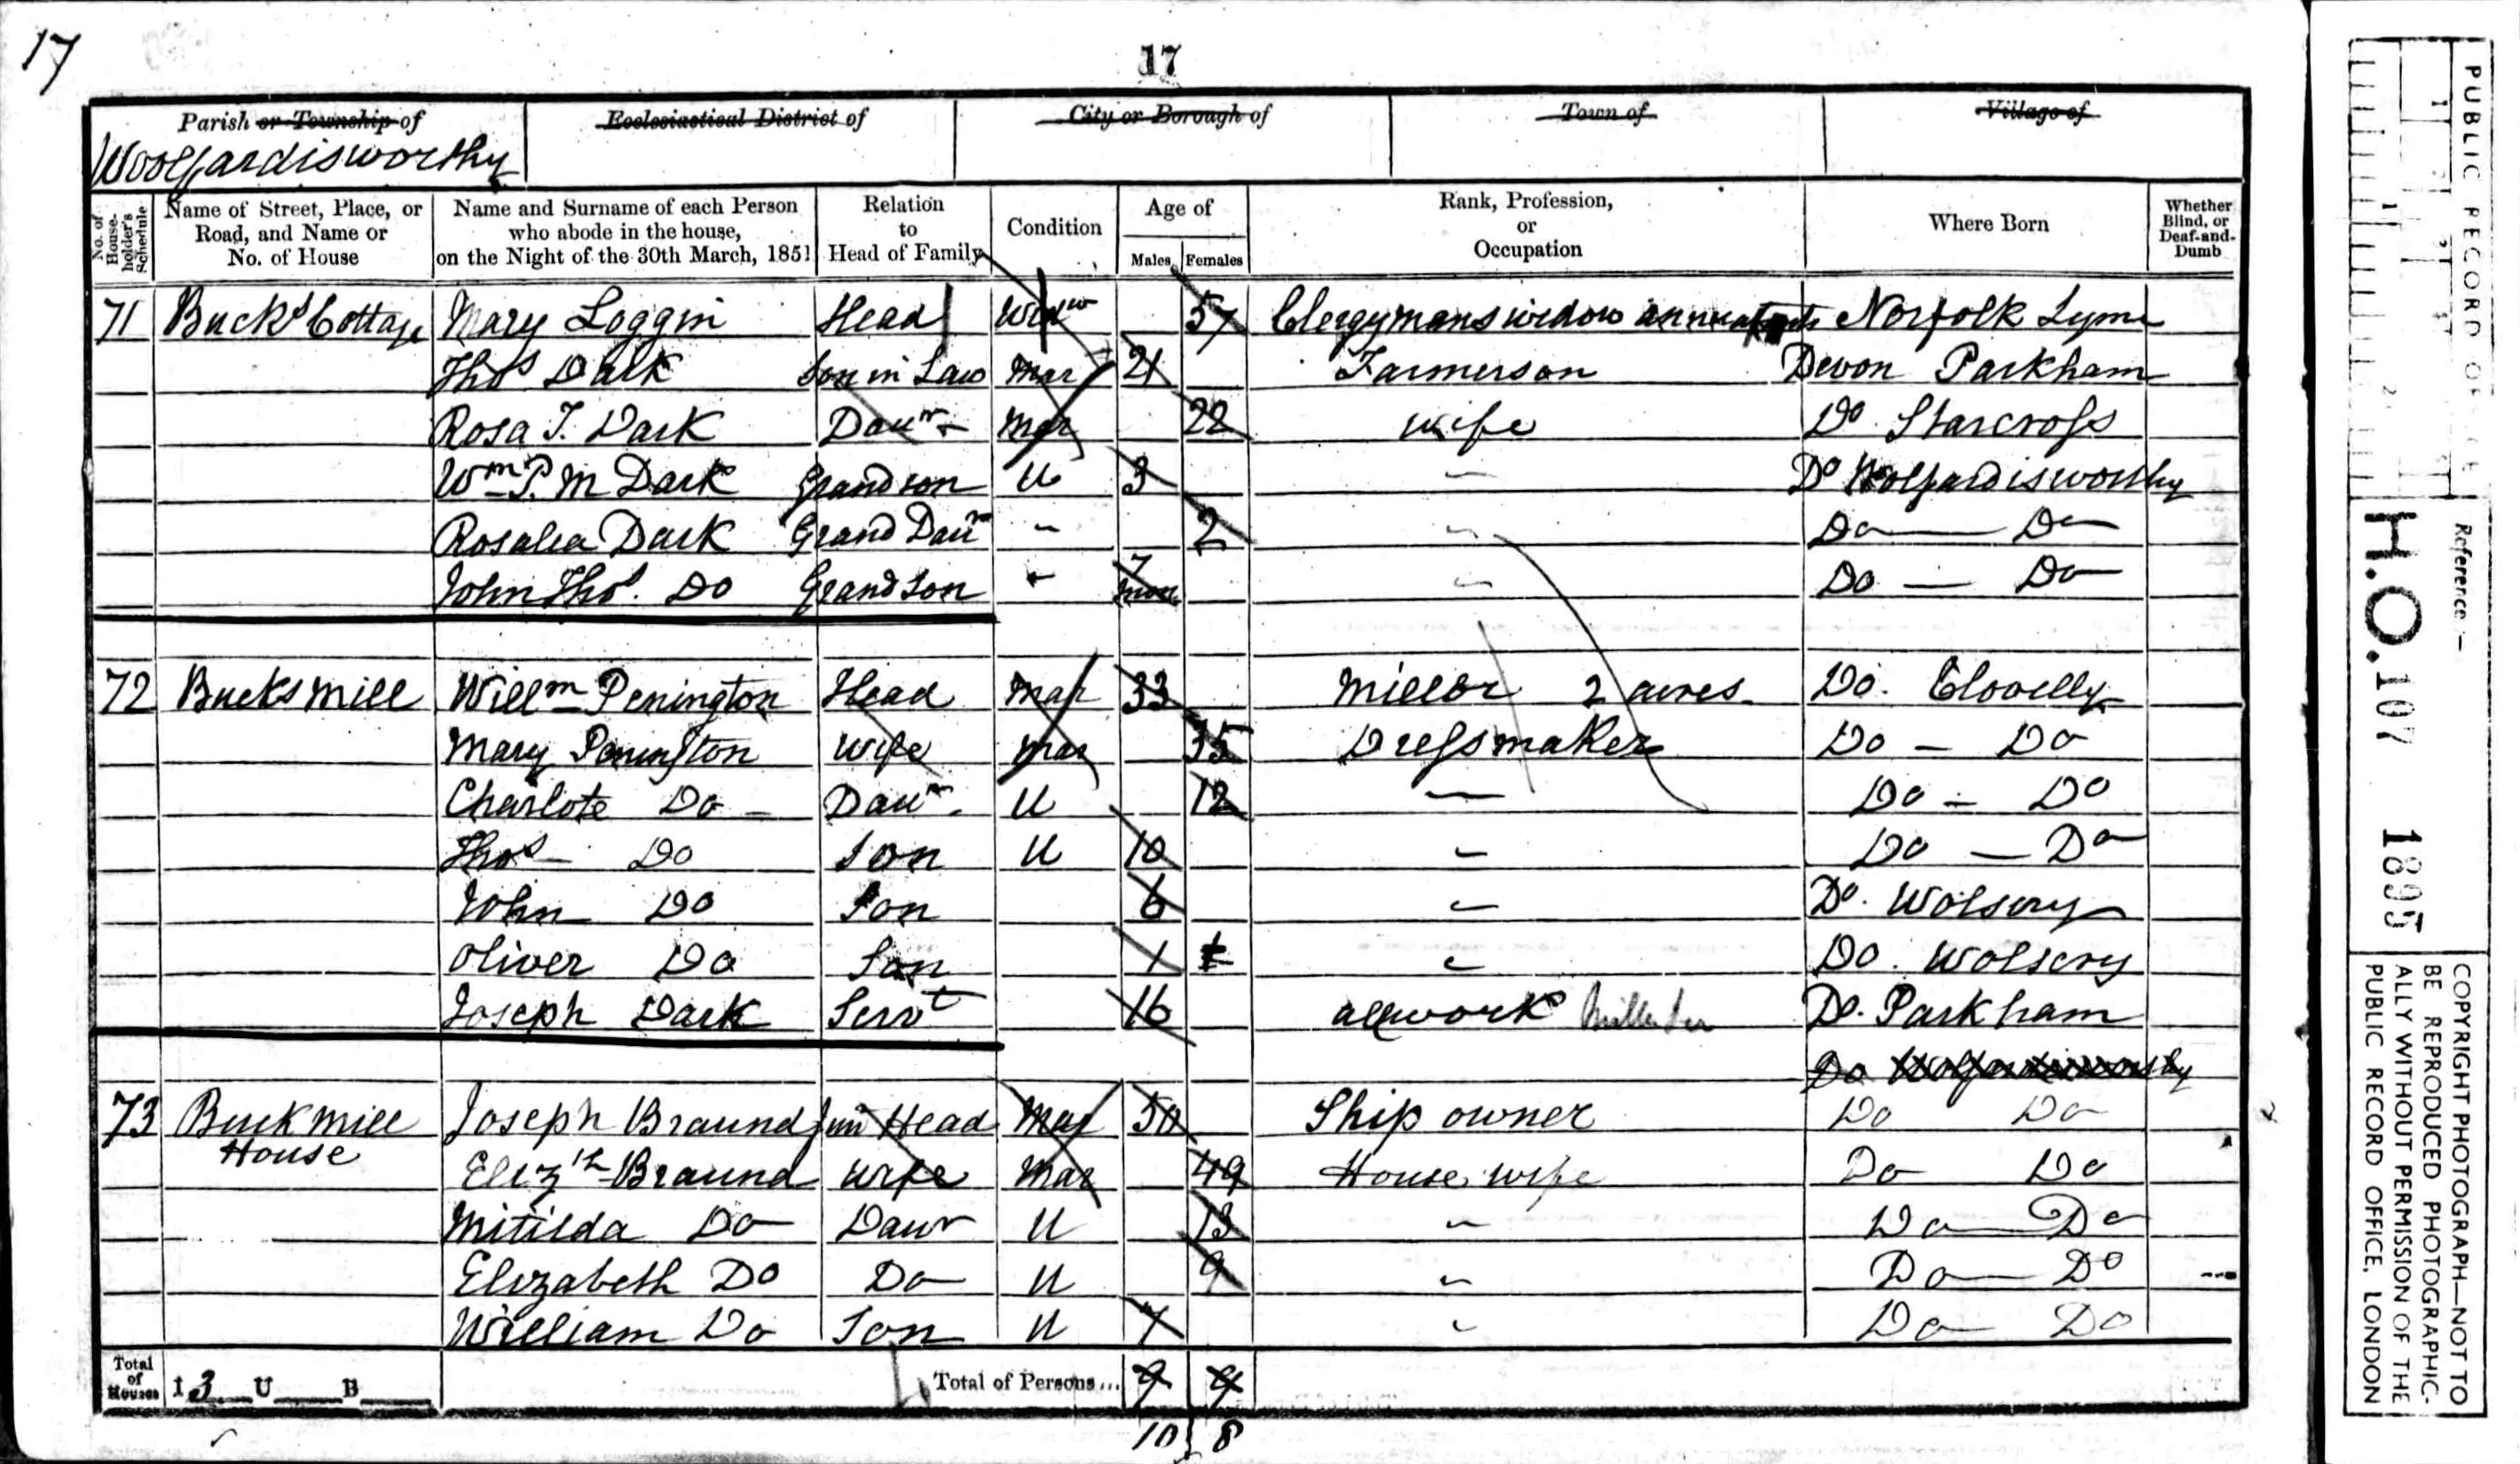 17
17
Parish or Township of
Ecclesiastical District of
City or Borough of
Town of
Village of
Woolfardisworthy
No. of House-holder's Schedule
Name of Street, Place, or Road, and Name or No. of House
Name and Surname of each Person who abode in the house, on the Night of the 30th March, 1851
Relation to Head of Family
Condition
Age of
Males
Females
Rank, Profession, or Occupation
Where Born
Whether Blind, or Deaf-and-Dumb
71 Bucks Cottage Mary Loggin Head Widw 57 Clergymans widow Norfolk Lynn
Thos Dark Son in Law Mar 21 Farmerson Devon Parkham
Rosa T. Dark Daur Mar 22 wife Do Starcross
Wm P. M Dark Grandson U 3 Do Wolfardisworthy
Rosalea Dark Grand Daur 2 Do Do
John Thos. Do Grandson 7 mon Do Do
72 Bucks Mill Willm Penington Head Mar 33 Miller 2 acres Do. Clovelly
Mary Penington Wife Mar 35 Dressmaker Do Do
Charlote Do Daur U 12 Do Do
Thos Do Son U 10 Do Do
John Do Son 6 Do. Wolsery
Oliver Do Son 1 Do. Wolsery
Joseph Dark Servt 16 allwork Do. Parkham
Do Wolfardisworthy
73 Buckmill Joseph Braund Jun Head Mar 50 Ship owner Do Do
House Elizth Braund Wife Mar 49 House wife Do Do
Mitilda Do Daur U 13 Do Do
Elizabeth Do Do U 9 Do Do
William Do Son U 7 Do Do
Total of Houses I 3 U B Total of Persons... 9 9
10 8
PUBLIC RECORD OFFICE
Reference:—
H.O. 107 1895
COPYRIGHT PHOTOGRAPH—NOT TO
BE REPRODUCED PHOTOGRAPHIC-
ALLY WITHOUT PERMISSION OF THE
PUBLIC RECORD OFFICE, LONDON